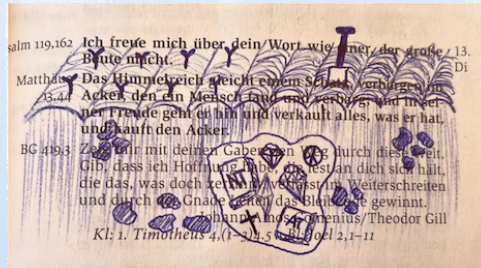 salm 119,162 Ich freue mich über dein Wort wie einer, der große 13.
Beute macht. Di
Matthäus Das Himmelreich gleicht einem Schatz, verborgen im
13,44 Acker, den ein Mensch fand und verbarg; und in sei-
ner Freude geht er hin und verkauft alles, was er hat,
und kauft den Acker.
BG 419,3 Zeig mir mit deinen Gaben den Weg durch diese Zeit.
Gib, dass ich Hoffnung habe, die fest an dich sich hält,
die das, was doch verrinnt, verlässt im Weiterschreiten
und durch der Gnade Leiten das Bleibende gewinnt.
Johann Amos Comenius/Theodor Gill
Kl: 1. Timotheus 4,(1–3)4.5 Joel 2,1–11
NT
AT